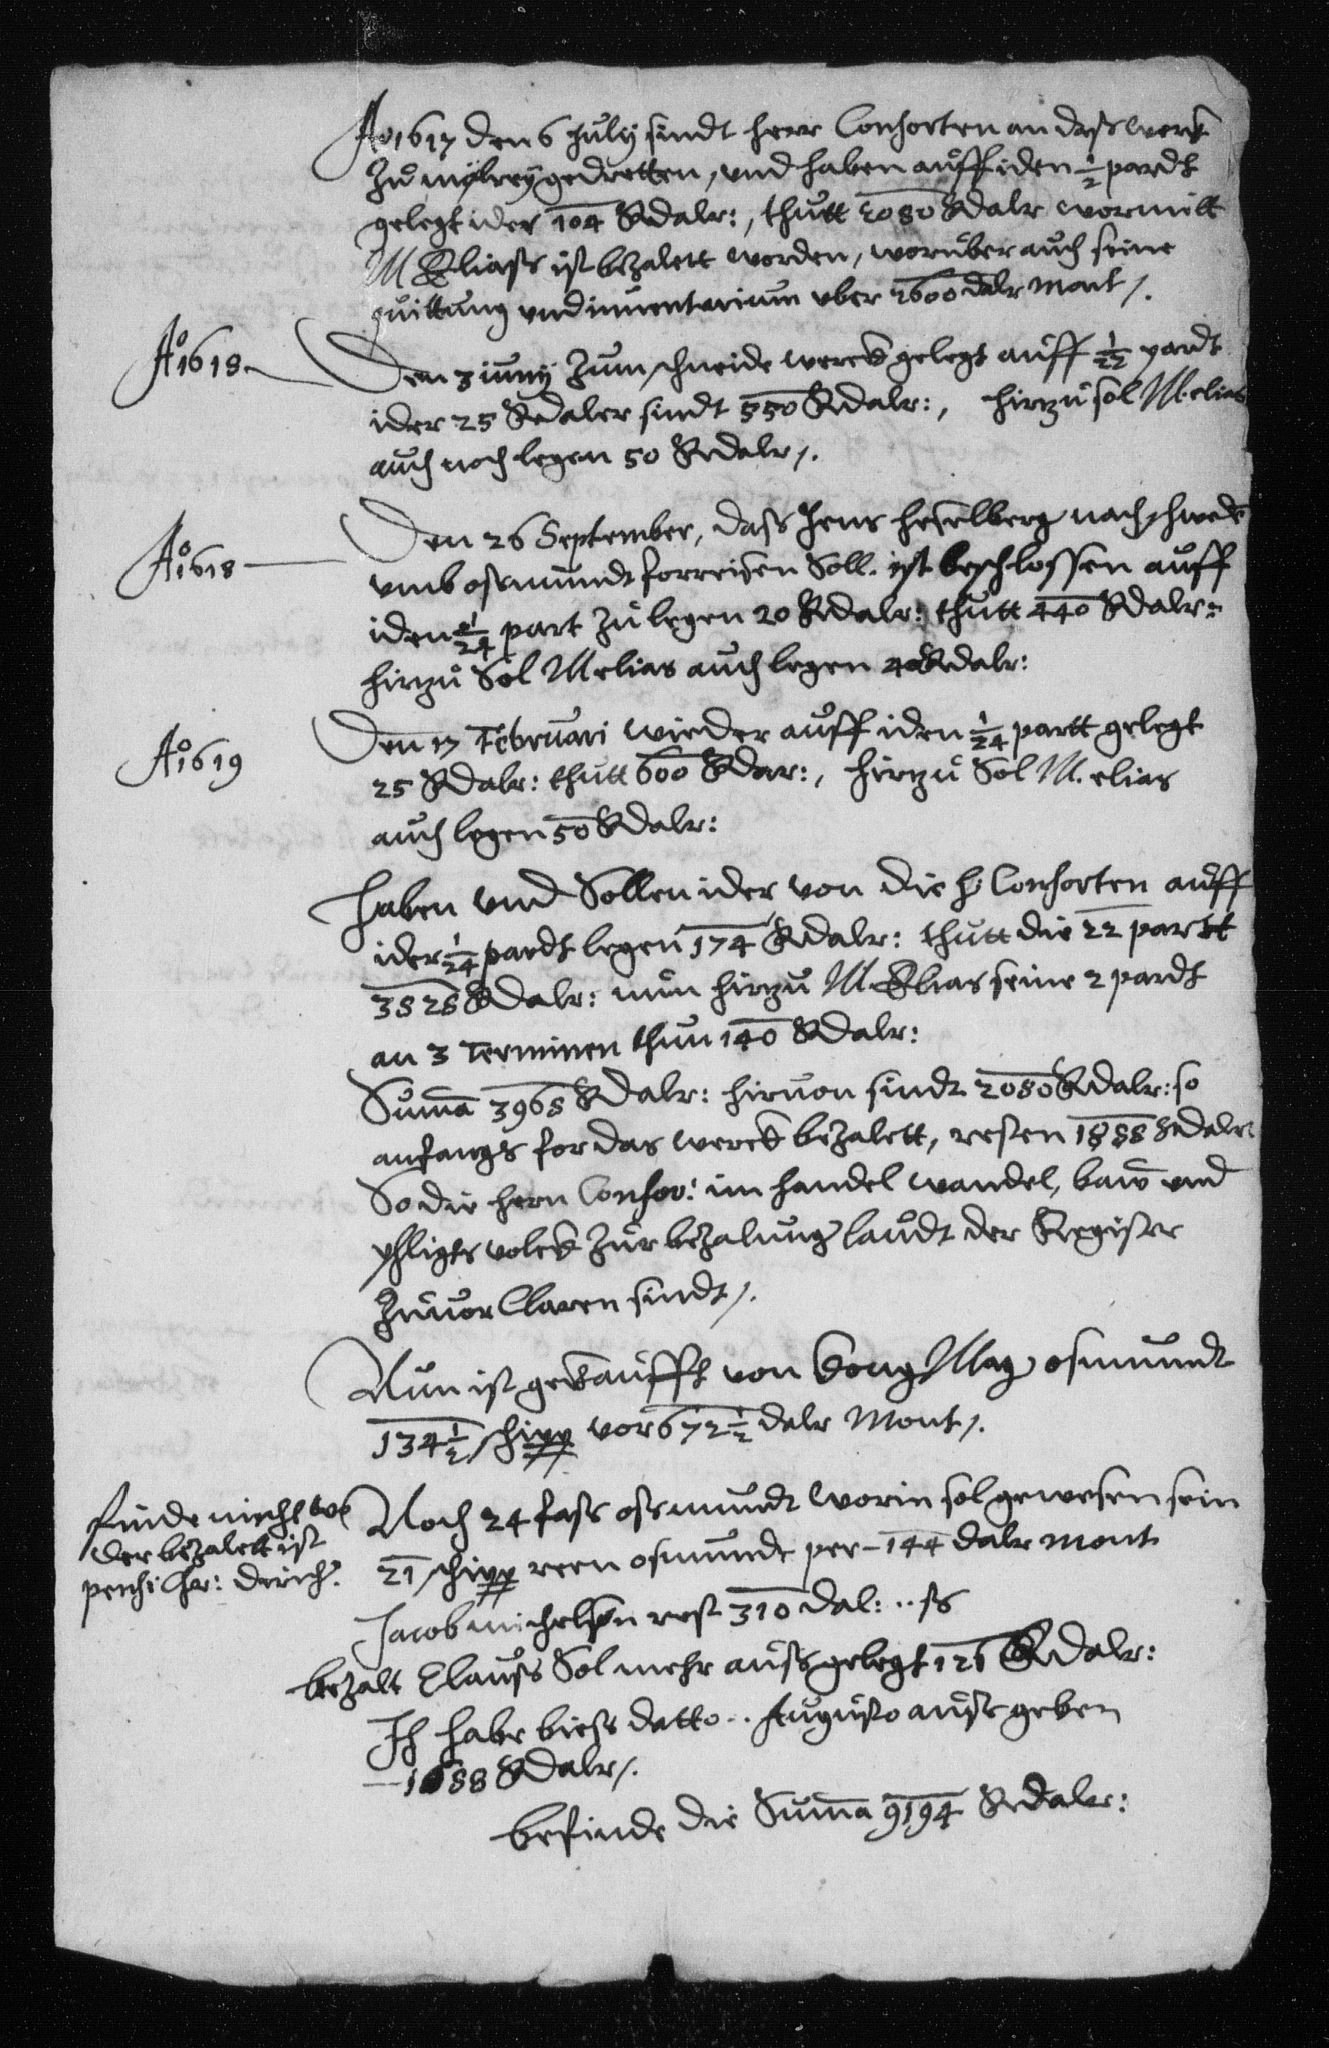 Ao 1617 den 6 July sindt herr Consorten an dass werk
zu mölrey gedretten, und haben auff iden ½ pardt
gelegt ider 104 Rdalr:, thutt 2080 Rdalr wormitt
M Eliass ist bezalett worden, worüber auch seine
quittung und inuentarium uber 2600 dalr mont /.
Ao 1618 Den 3 iuny zum schneide werck gelegt auff 1/22 pardt
ider 25 Redaler sindt 550 Rdalr:, hirzu sol M. elias
auch noch legen 50 Redalr /.
Ao 1618 Den 26 September, dass Jens heselberg nach schwedē
umb ossmundt forreisen Soll. ist beschlossen auff
iden 1/24 part zu legen 20 Redalr: thutt 440 Rdalr:
hirzu Sol M elias auch legen 40 Redalr:
Ao 1619 Den 17 Februari wieder auff iden 1/24 partt gelegt
25 Rdalr: thutt 600 Rdar:, hirzu Sol M. elias
auch legen 50 Rdalr:
haben und Sollen ider von die h. Consorten auff
ider 1/24 pardt legen 174 Rdalr: thutt die 22 partt
3828 Rdalr: nun hirzu M. Elias seine 2 pardt
an 3 Terminen thun 140 Rdalr:
Sum̄a 3968 Rdalr: hiruon sindt 2080 Rdalr: so
anfangs for das werck bezalett, resten 1888 Rdalr
So die hern Consor: im handel wandel, baw und
volck zur bezalung laudt der Register
zuuor Claren sindt /.
Nun ist gekaufft von kong May osmundt
134½ schipp vor 672½ dalr Mont /.
finde nicht wo
der bezalett ist
Hr: dirich.
Noch 24 fass ossmundt worin sol gewesen sein
21 schipp reen osmundt per – 144 dalr mont
Jacob michelsen rest 310 dal: .. ss
bezalt Clauss Sol mehr aussgelegt 126 Rdalr:
Ich habe biess datto .. Augusto aussgeben
— 1688 Rdalr /.
befinde die Sum̄a 9194 Redaler: